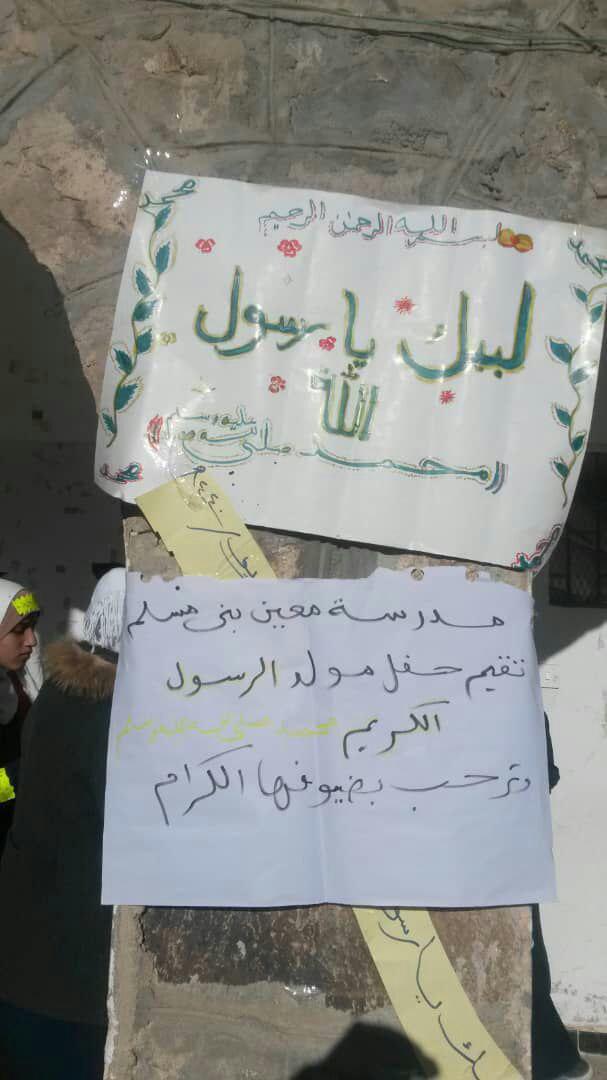 بسم الله الرحمن الرحيم
محمد
محمد
لبيك يا رسول
الله
محمد صلى الله عليه وسلم
محمد
محمد
مدرسة معين بني مسلم
تقيم حفل مولد الرسول
الكريم محمد صلى الله عليه وسلم
وترحب بضيوفها الكرام
يا رسو